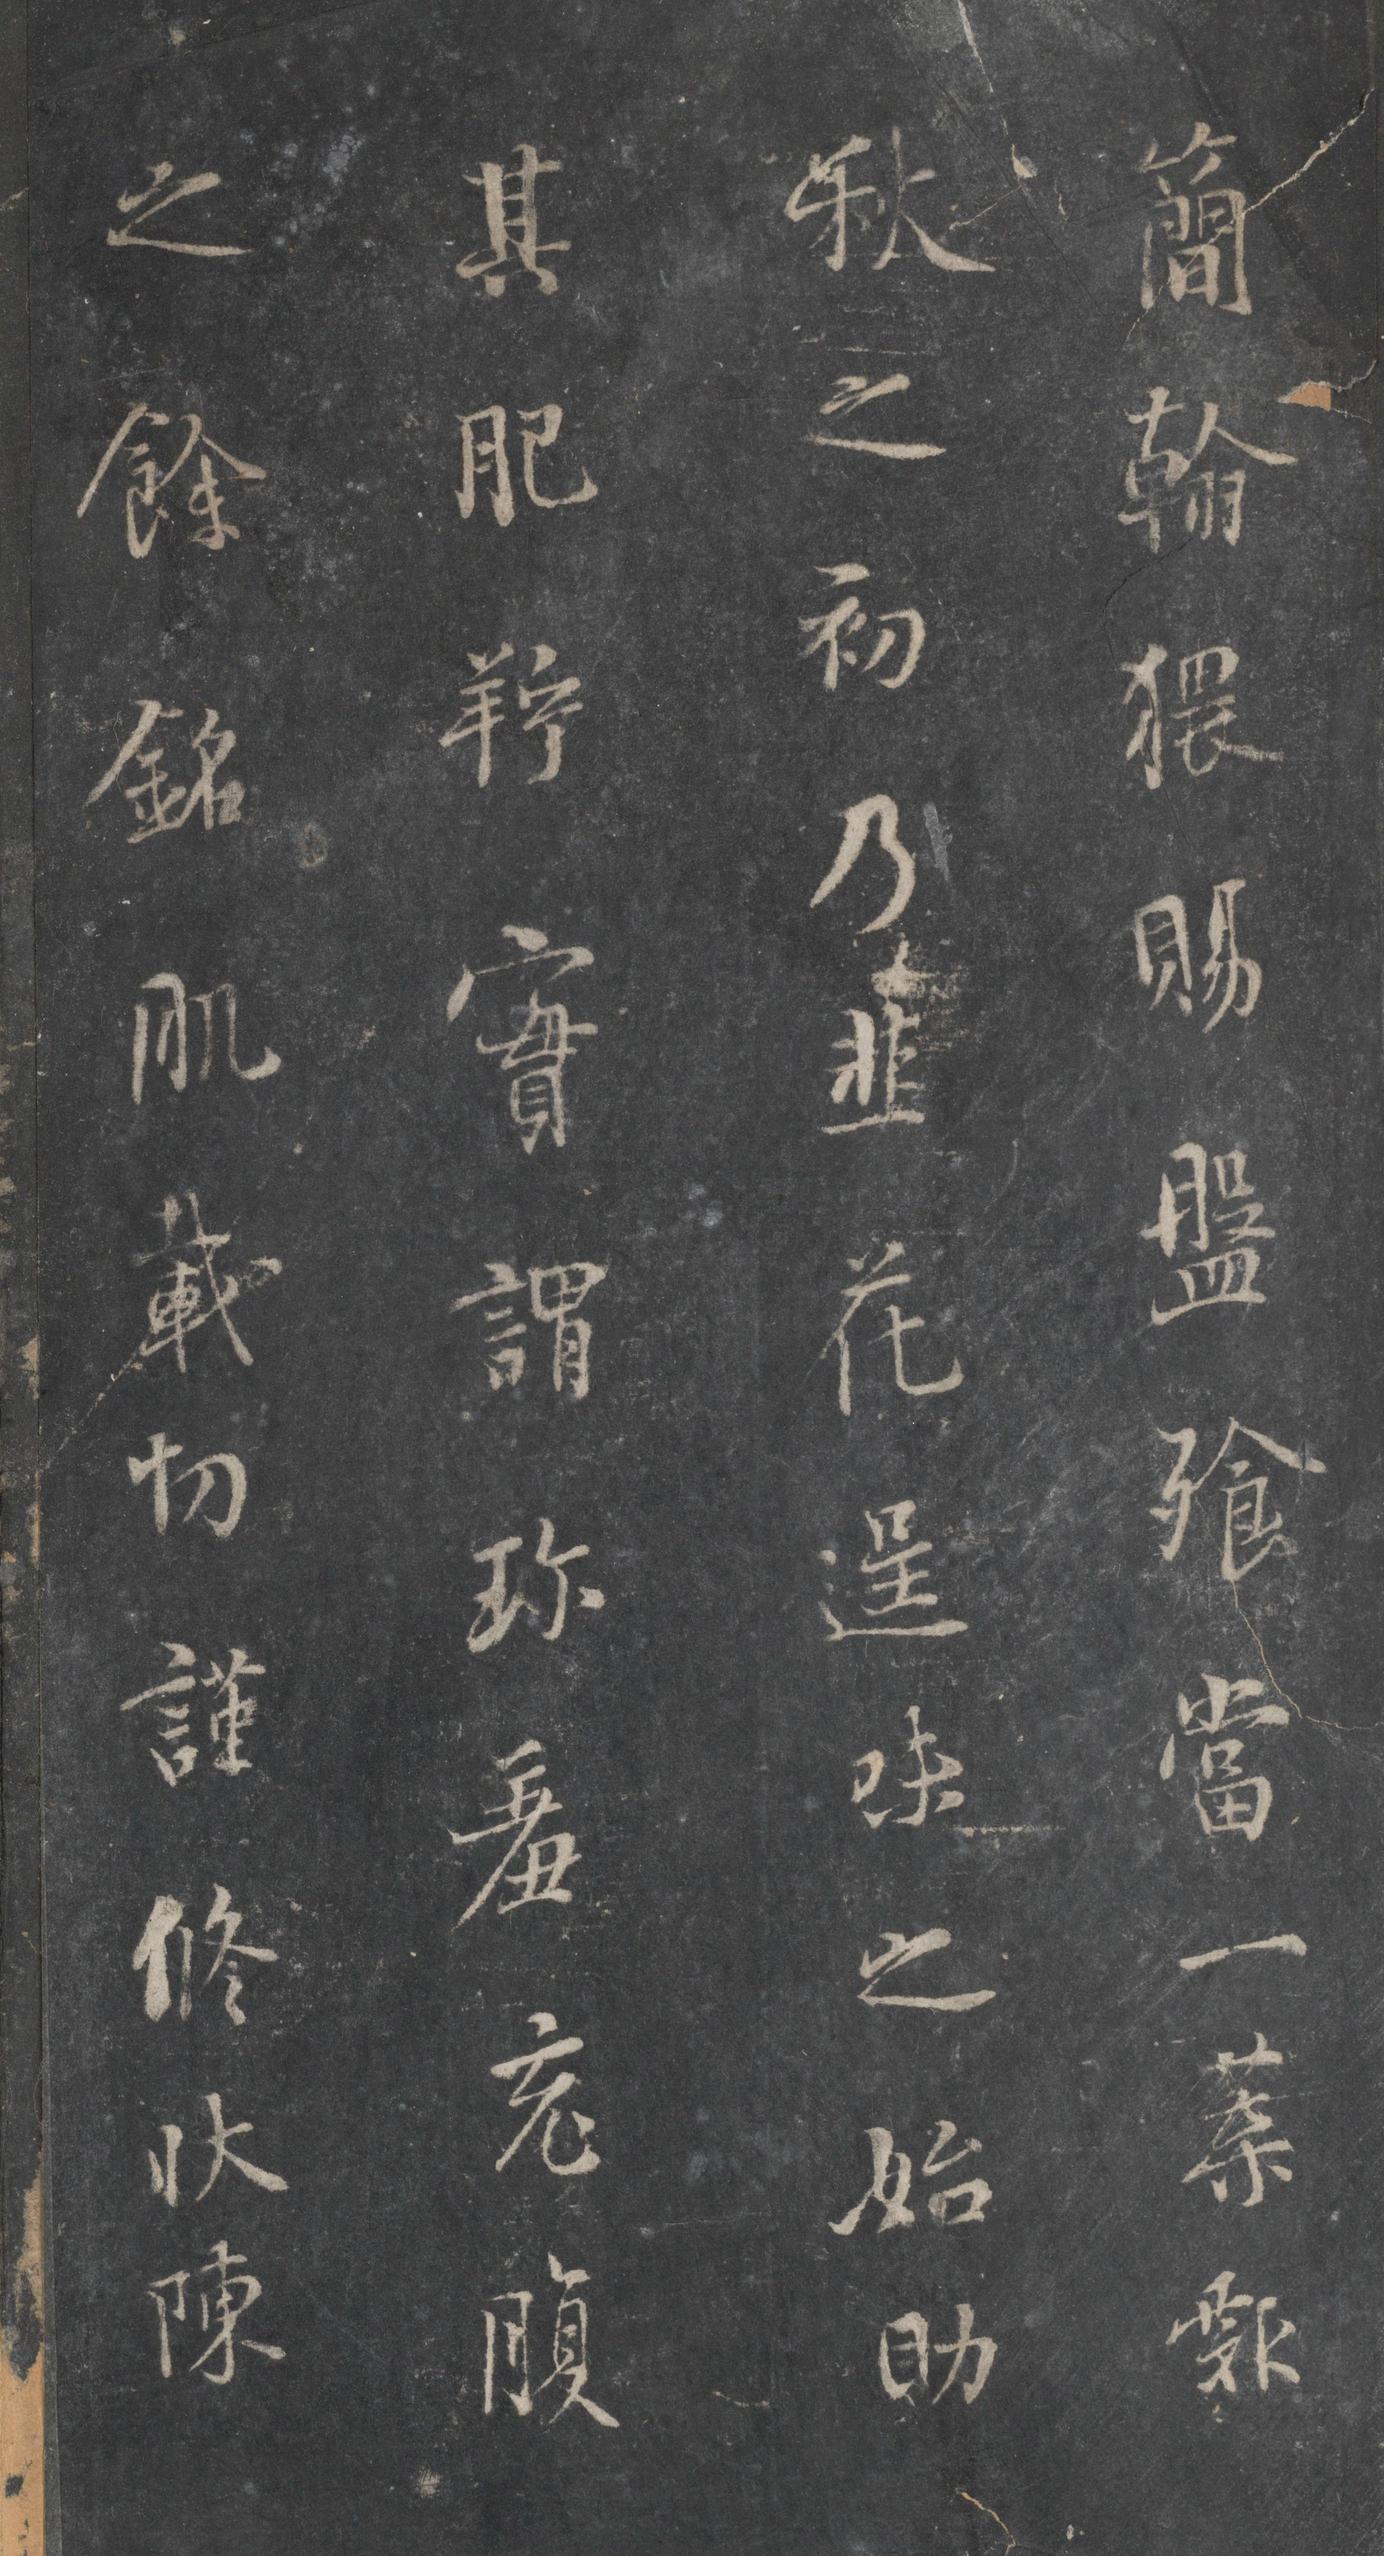 簡翰猥賜盤飱當一葉報
秋之初乃韭花逞味之始助
其肥羜實謂珎羞充腹
之餘銘肌載切謹修狀陳